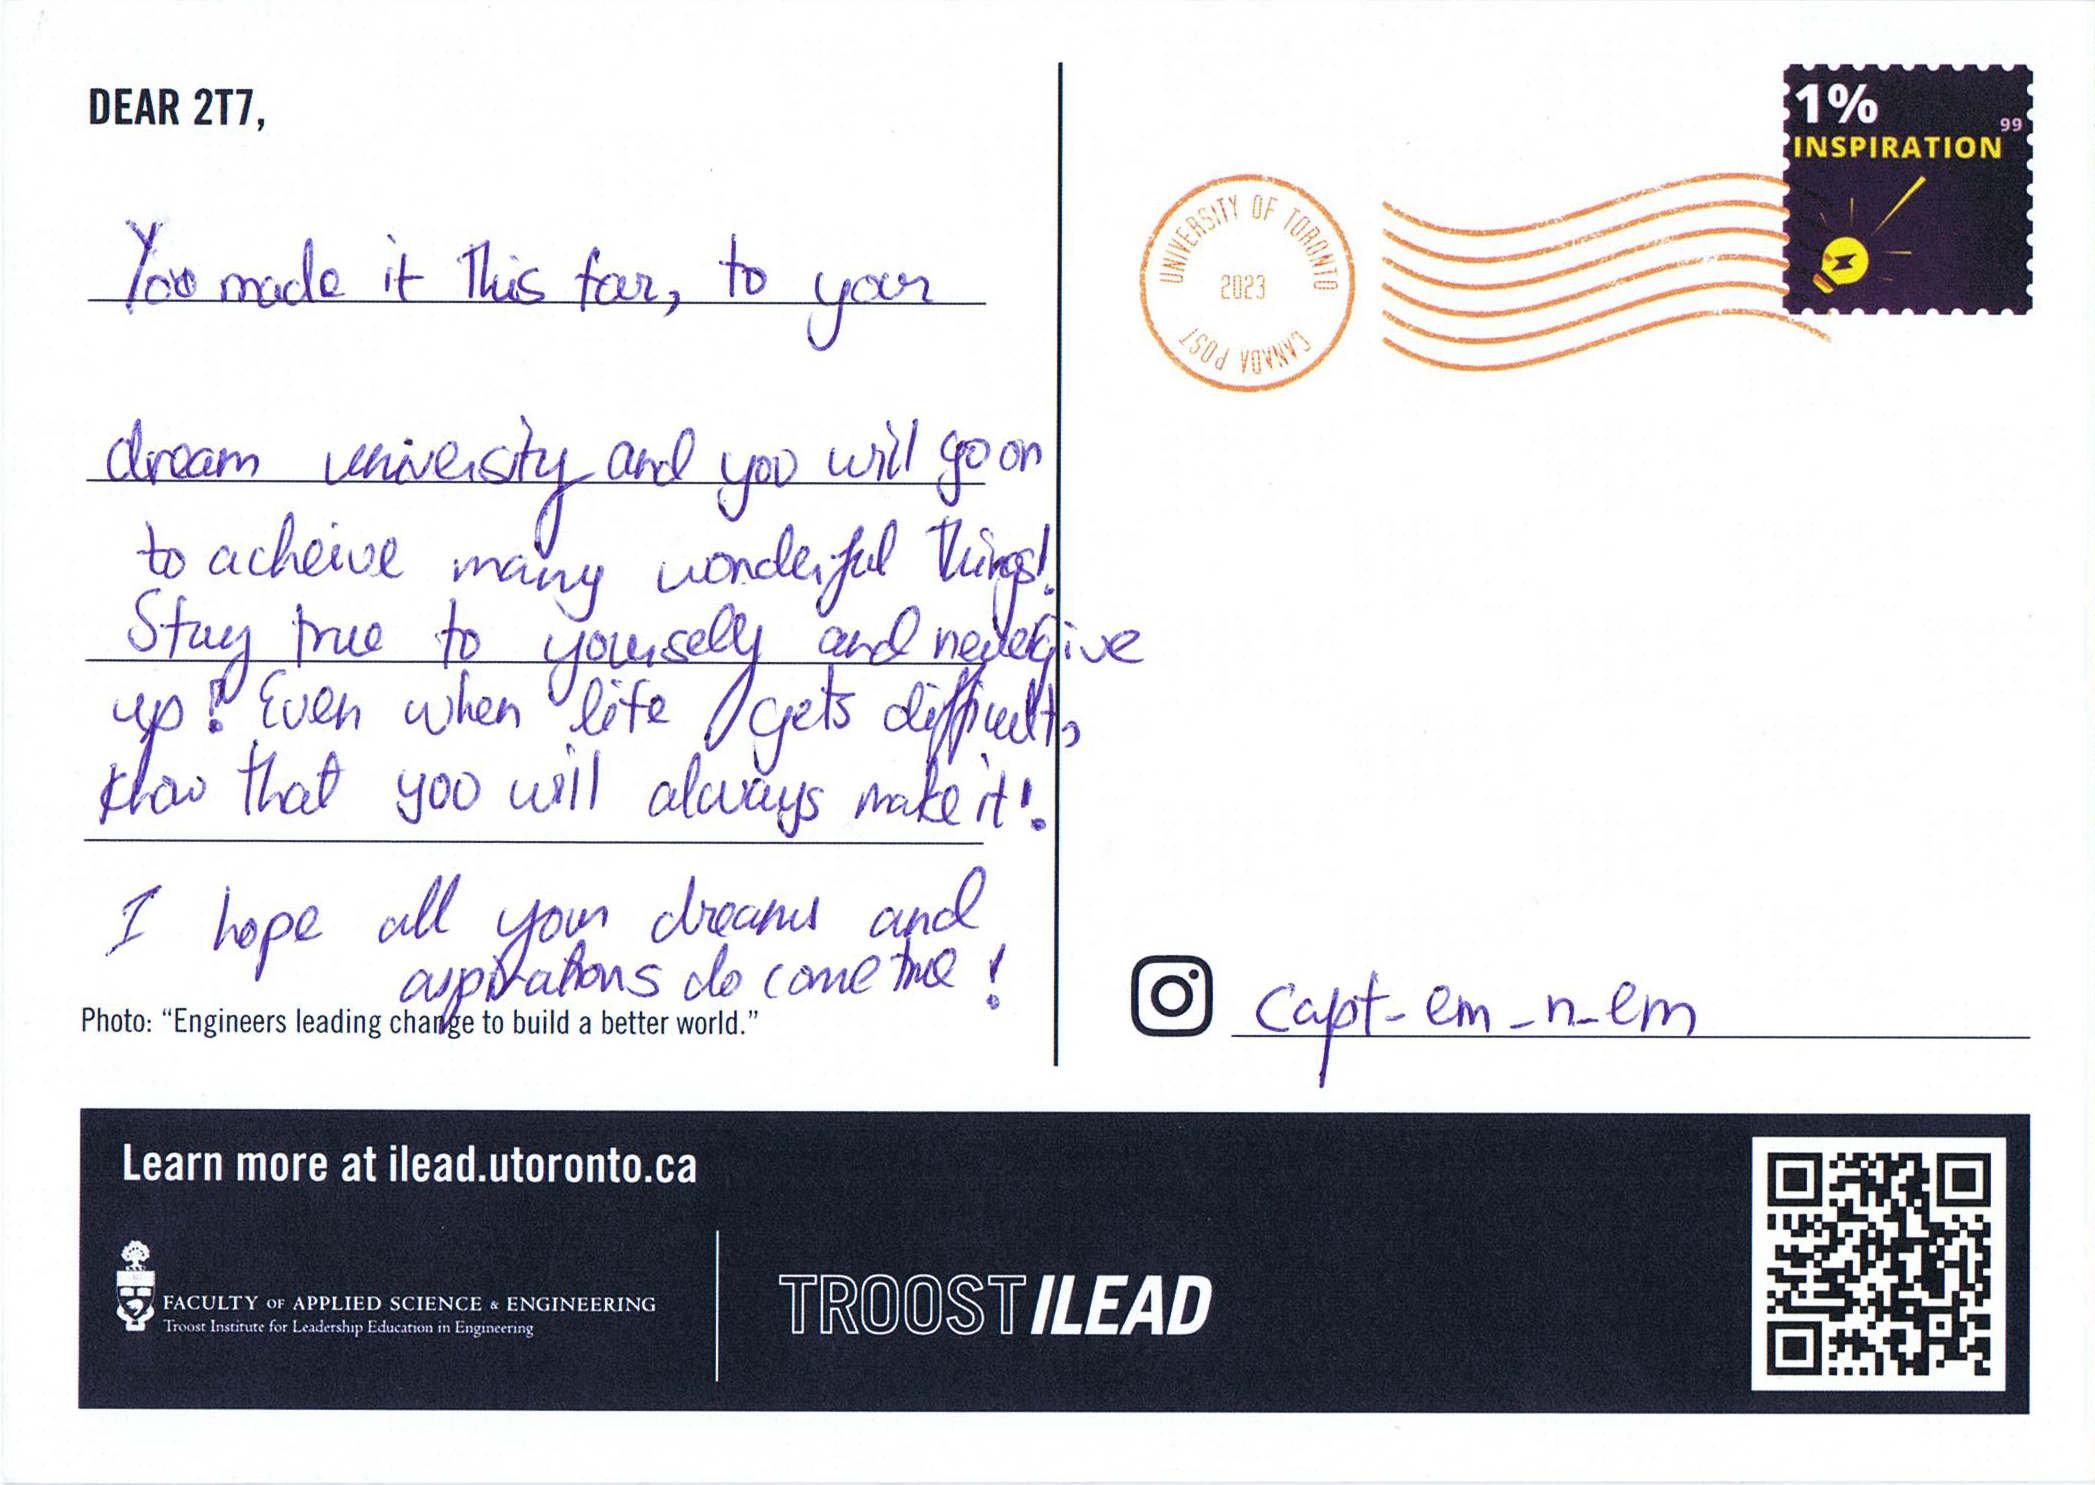 DEAR 2T7,
You made it this far, to your
dream university and you will go on
to acheive many wonderful things!
Stay true to yourself and never give
up! Even when life gets difficult,
know that you will always make it!
I hope all your dreams and
aspirations do come true!
Photo: “Engineers leading change to build a better world.”
1%
99
INSPIRATION
UNIVERSITY OF TORONTO
2023
CANADA POST
capt_em_n_em
Learn more at ilead.utoronto.ca
FACULTY OF APPLIED SCIENCE & ENGINEERING
Troost Institute for Leadership Education in Engineering
TROOST ILEAD